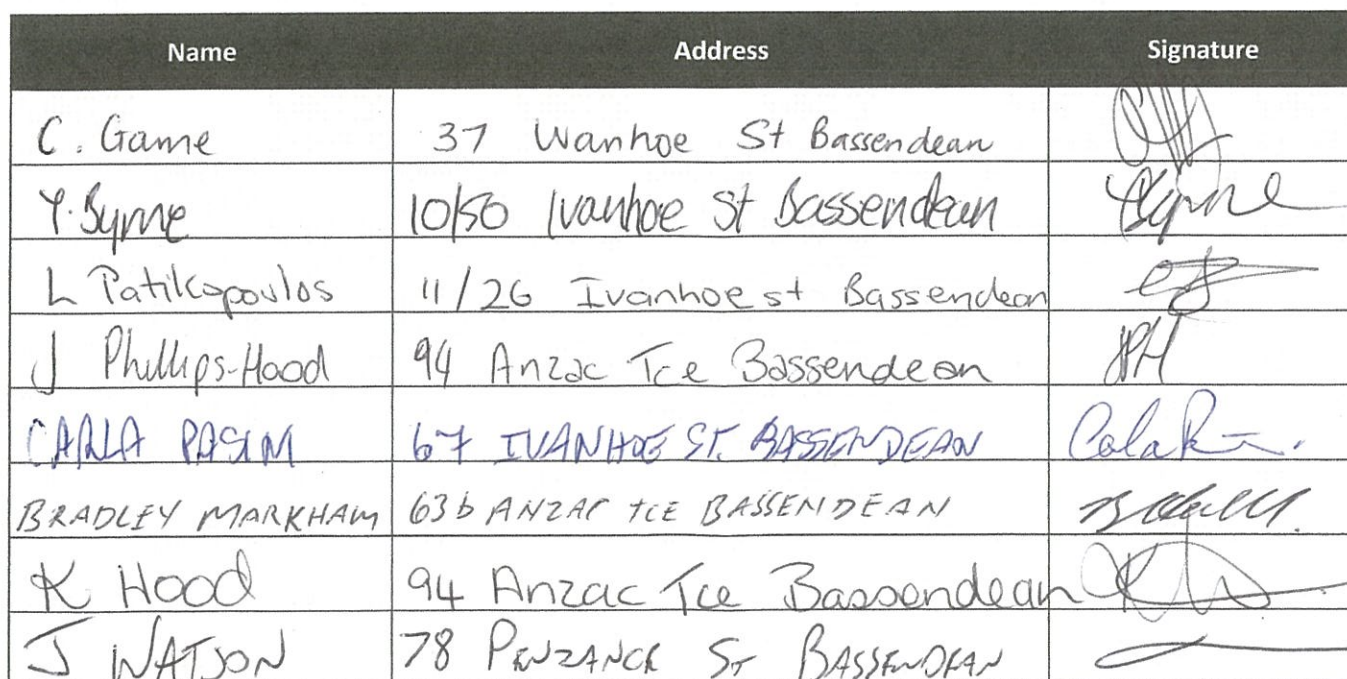 Name Address Signature
C. Game 37 Wanhoe St Bassendean
Y. Byrne 10/50 Ivanhoe St Bassendean Byrne
L Patilkopoulos 11/26 Ivanhoe st Bassendean
J Phillips-Hood 94 Anzac Tce Bassendean JPH
CARLA PASIM 67 IVANHOE ST. BASSENDEAN
BRADLEY MARKHAM 63b ANZAC tCE BASSENDEAN
K Hood 94 Anzac Tce Bassendean
J WATSON 78 PENZANCE ST BASSENDEAN